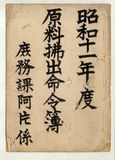 昭和十一年度
原料拂出命令簿
庶務課阿片係